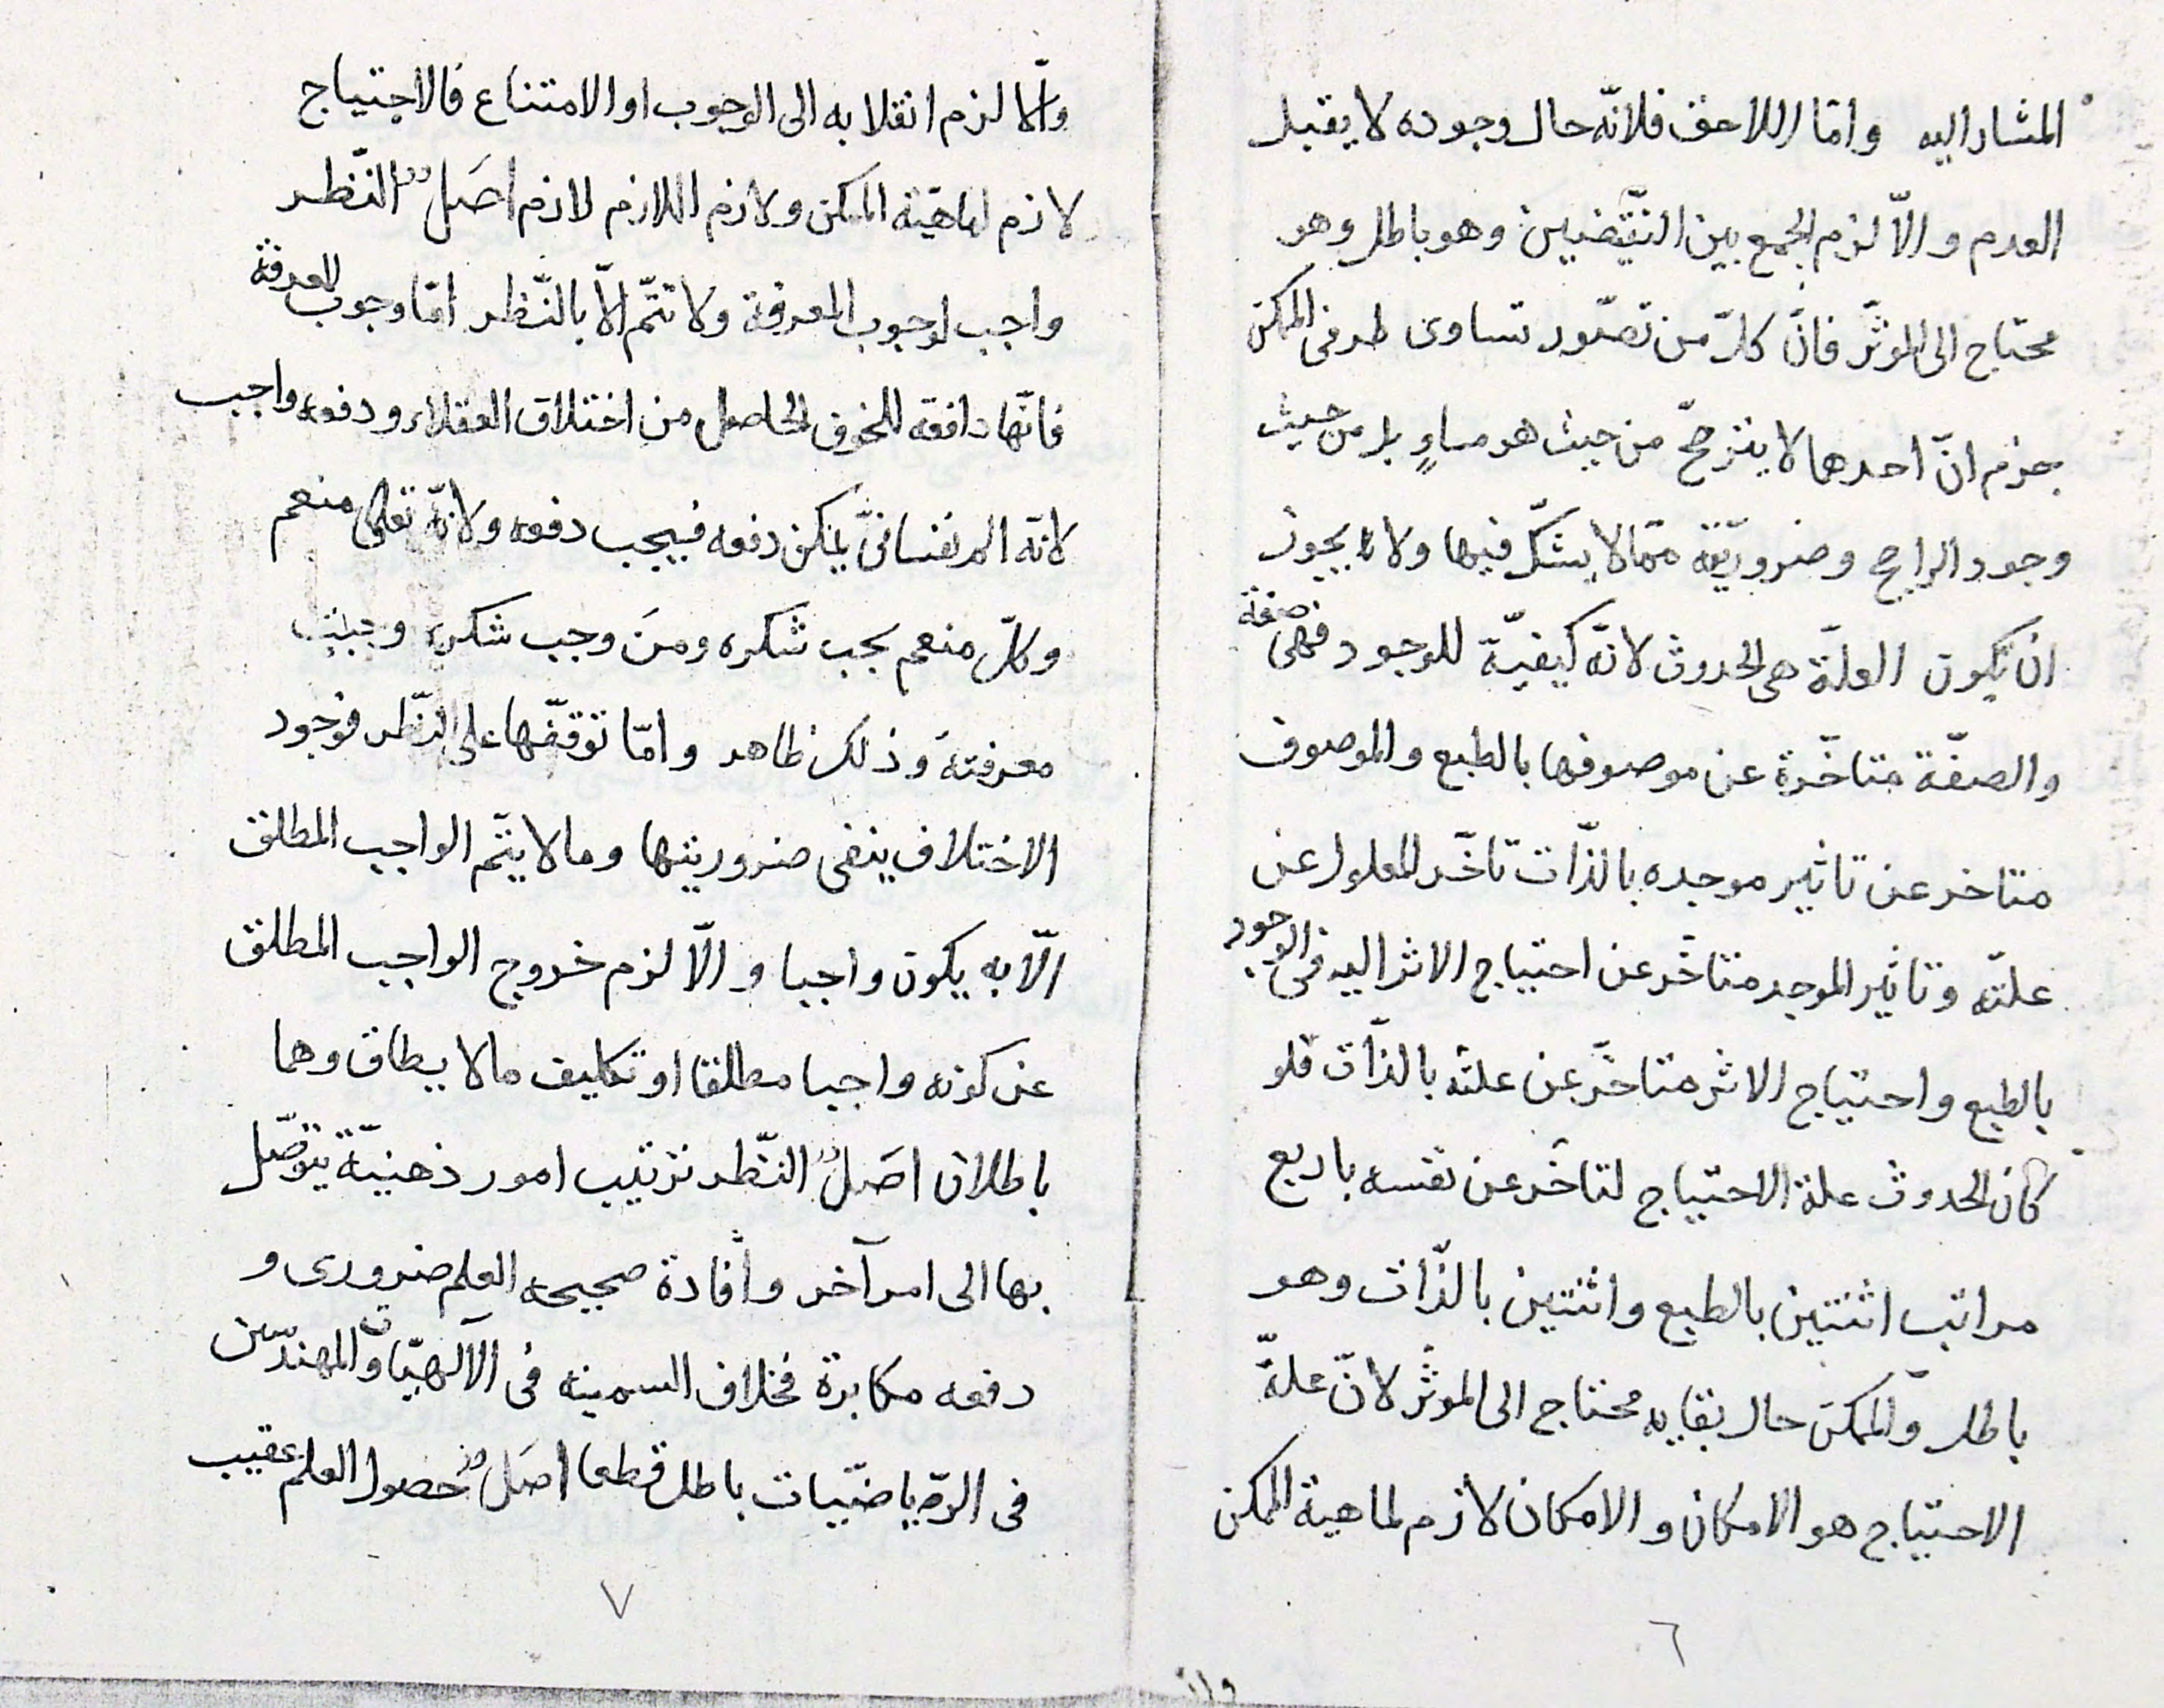 المشار اليه وامّا اللاحق فلانّه حال وجوده لا يقبل
العدم والّا لزم الجمع بين النّقيضين وهو باطل وهو
محتاج الى المؤثّر فانّ كلّ من تصّور تساوى طرفى الممكن
جزم انّ احدهما لا يترجّح من حيث هو مساوٍ بل من حيث
وجود الراجح وضروريّة ممّا لا يشكّ فيها ولا يجوز
ان يكون العلّة هى الحدوث لانّه كيفيّة للوجود فهى صفة
والصفّة متاخّرة عن موصوفها بالطبع والموصوف
متاخر عن تاثير موجده بالذّات تاخّر المعلول عن
علتّه وتاثير الموجد متاخّر عن احتياج الاثر اليه فى الوجود
بالطبع واحتياج الاثر متاخّر عن علته بالذّات فلو
كان الحدوث علة الاحتياج لتاخّر عن نفسه باربع
مراتب اثنتين بالطبع واثنتين بالذّات وهو
باطل والممكن حال بقايه محتاج الى المؤثّر لانّ علّة
الاحتياج هو الامكان والامكان لازم لماهية الممكن
٦
والّا لزم انقلابه الى الوجوب او الامتناع فالاحتياج
لازم لماهيّة الممكن ولازم اللازم لازم اصَل النّظر
واجب لوجوب المعرفة ولا تتمّ الّا بالنّظر امّا وجوب المعرفة
فانّها دافعة للخوف الحاصل من اختلاف العقلاء ودفعه واجب
لانّه الم نفسانىّ يمكن دفعه فيجب دفعه ولانّه تعالى منعم
وكلّ منعم يجب شكره ومن وجب شكره وجبت
معرفته وذلك ظاهر وامّا توقّفها على النّظر فوجود
الاختلاف ينفى ضروريتها وما لا يتّم الواجب المطلق
الّا به يكون واجبا والّا لزم خروج الواجب المطلق
عن كونه واجبا مطلقا او تكليف ما لا يطاق وهما
باطلان اصَل النّظر ترتيب امور ذهنيّة يتوصّل
بها الى امر آخر وافادة صحيحه العلم ضرورى و
دفعه مكابرة فخلاف السمينه فى الآلهيّات والمهندسّين
فى الرّياضيّيات باطل قطعا اصَل حصول العلم عقيب
٧